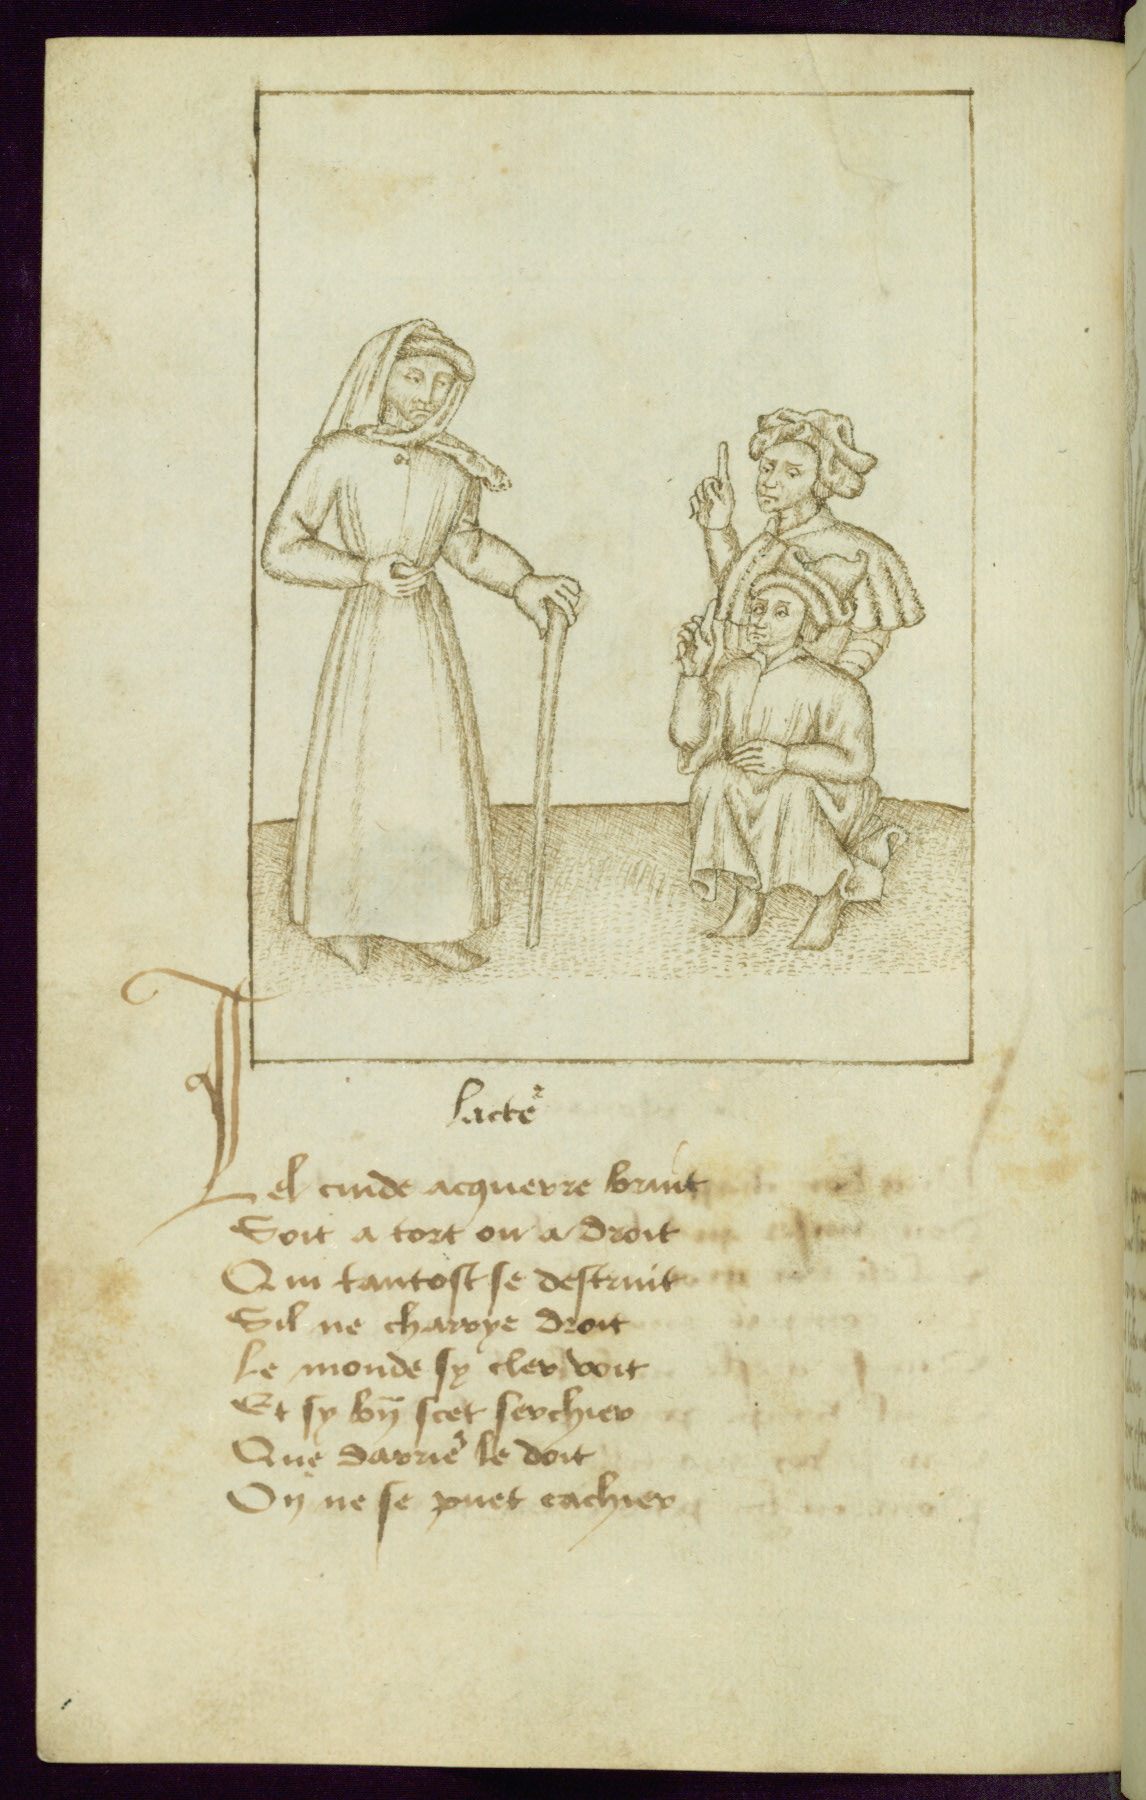 lacteʳ
Tel cuide acquerre bruit
Soit a tort ou a droit
Qui tantost se destruit
Sil ne charrye droit
Le monde sy cler voit
Et sy bn̄ scet serchier
Que darrieʳ le doit
On ne se puet cachier